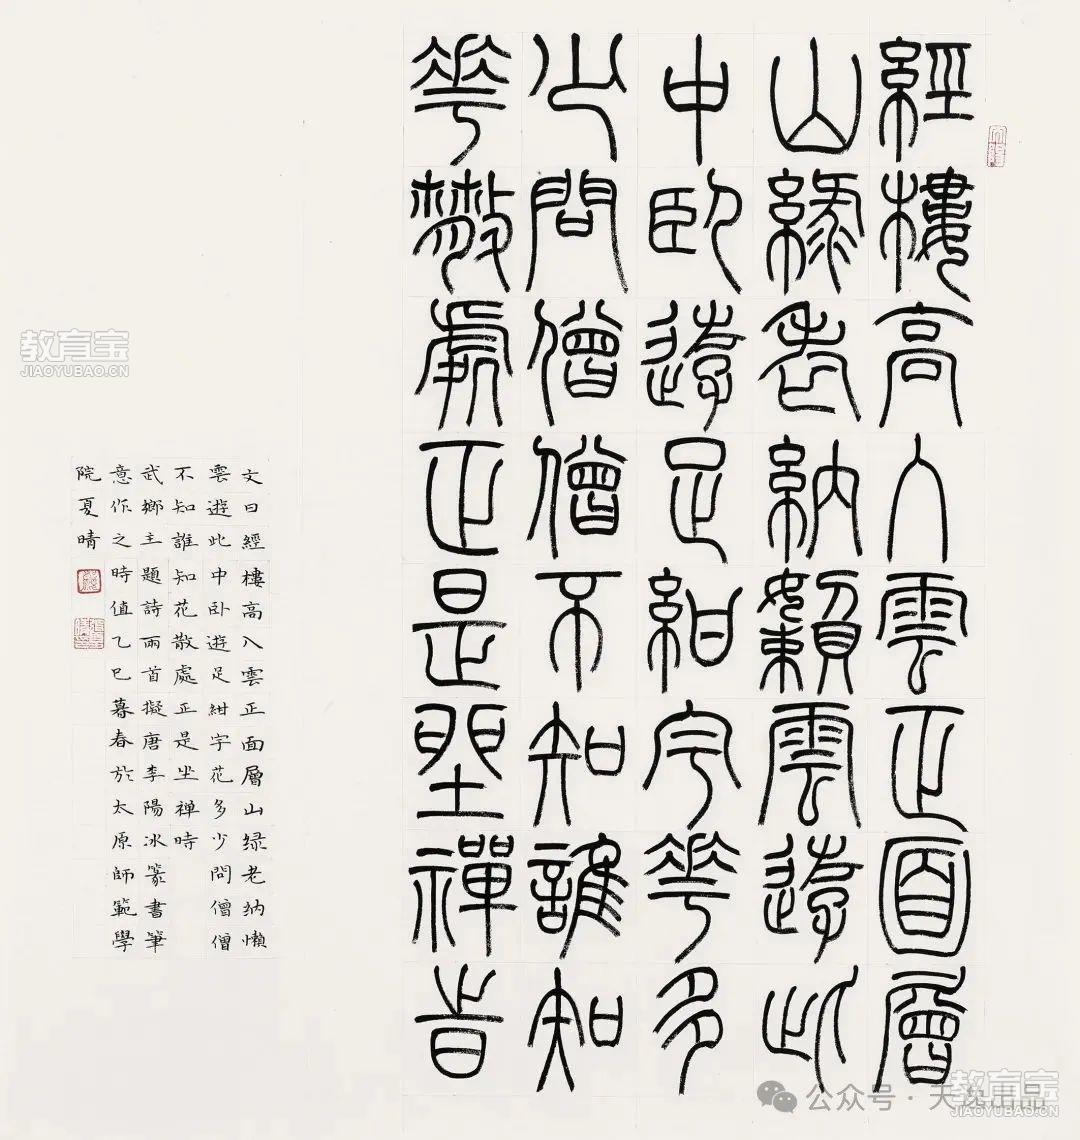 經樓高入雲正面層
山緑老納懶雲遊此
中卧遊足紺宇華多
少問僧僧不知誰知
華散處正是坐禪時
文曰經樓高入雲正面層山緑老纳懶
雲遊此中卧遊足紺宇花多少問僧僧
不知誰知花散處正是坐禅時
武鄉主題詩兩首擬唐李陽冰篆書筆
意作之時值乙巳暮春於太原師範學
院夏晴
教育宝
JIAOYUBAO.CN
公众号 · 天逸出品
教育宝
JIAOYUBAO.CN